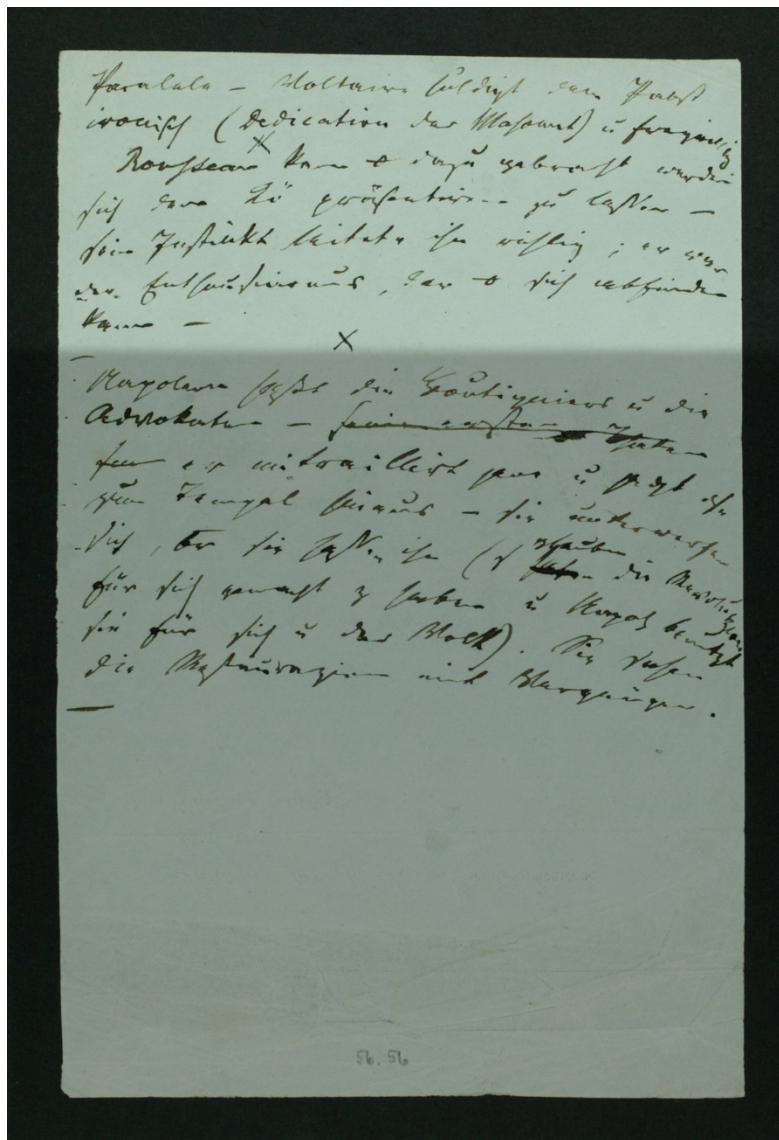 Paralele – Voltaire huldigt dem Pabst
ironisch (Dedication des Mahomet) u freywillig
Rousseau kann o dazu gebracht werden
sich dem Kö präsentiren zu lassen –
sein Instinkt leitete ihn richtig; er war
der Enthousiasmus, der o sich abfinden
kann –
Napoleon haßte die Boutiquiers u die
Advokaten – seine ersten Thaten
er mitraillirt jene u jagt diese
zum Tempel hinaus – sie unterwerfen
sich, aber sie hassen ihn (sie glauben die Revoluzion
für sich gemacht z haben u Napol benutzt
sie für sich u das Volk). Sie sehen
die Restaurazion mit Vergnügen.
56.56